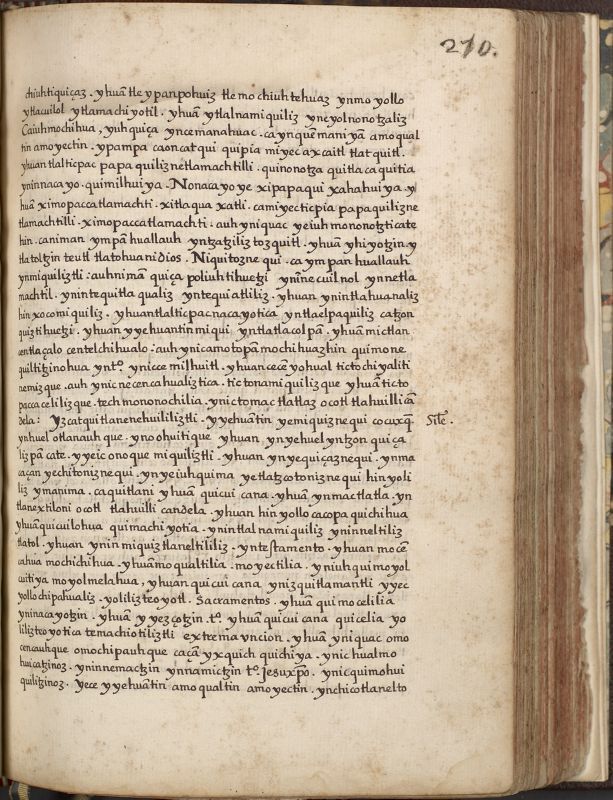 270.
chiuhtiquiçaz. yhuā tle ypan pohuiz tle mochiuhtehuaz ynmo yollo
ytlacuilol ytlamachiyotil. yhuā ytlalnamiquiliz ynceyolnonotzaliz
Caiuhmochihua, yuhquiça yncemanahuac. ca ynquēmaniyā amo qual
tin amoyectin. ypampa caoncatqui quipia miyec axcaitl tlatquitl.
yhuan tlalticpac papaquiliznetlamachtilli. quinonotza quitlacaquitia
yninnacayo. quimilhuiya. Nonacayoye xipapaqui xahahuiya. y
huā ximopaccatlamachti. xitlaqua xatli. camiyecticpia papaquilizne
tlamachtilli. ximopaccatlamachti. auh yniquac yeiuh mononotzticate
hin. caniman ympā huallauh yntzatziliztozquitl. yhuā yhiyotzin y
tlatoltzin teutl tlatohuani dios. Niquitoznequi. ca ympan huallauh
ynmiquiliztli: auhnimā quiça poliuhtihuetzi yninecuilnol ynnetla
machtil. ynintequitlaqualiz yntequiatliliz. yhuan ynintlahuanaliz
hin xocomiquiliz. yhuan tlalticpacnacayotica yntlaelpaquiliz catzon
quiztihuetzi. yhuan yyehuantin miqui yntlatlacolpā. yhuā mictlan
centlaçalo centelchihualo: auh ynicamotopāmochihuazhin quimone
quiltitzinohua ynto. ynicce milhuitl. yhuan cecēyohual tictochiyaliti
nemizque. auh ynic necencahualiztica. tictonamiquilizque yhuā ticto
paccacelilizque. techmononochilia. ynictomactlatlaz ocotl tlahuilli cā
dela: Yzcatqui tlanenehuililiztli. yyehuātin yemiquiznequi cocuxq̄ Sile.
ynhuel otlanauhque. ynoohuitique yhuan ynyehuel yntzonquiça
lizpā cate. yyeic onoque miquiliztli. yhuan ynyequiçaznequi. ynma
caçan yechitoniznequi. ynyeiuhquima yetlatzcotoniznequi hinyoli
liz ymanima. caquitlani yhuā quicuicana. yhuā ynmactlatla. yn
tlanextiloni ocotl tlahuilli candela. yhuan hinyollocacopa quichihua
yhuāquicuilohua quimachiyotia. ynintlalnamiquiliz yninneltiliz
tlatol. yhuan ynin miquiztlaneltililiz. yntestamento. yhuan mocē
cahua mochichihua. yhuāmoqualtilia. moyectilia. yniuhquimoyol
cuitiya moyolmelahua, yhuan quicuicana ynizquitlamantli yyec
yollochipahualiz. yoliliz teoyotl. Sacramentos. yhuā quimocelilia
yninacayotzin. yhuā yyezçotzin. to. yhuā quicuicana quicelia yo
liliz teoyotica temachiotiliztli extrema vncion. yhuā yniquac omo
cencauhque omochipauhque caçā yxquich quichiya. ynichualmo
huicatzinoz. ynninemactzin ynnamictzin to. Jesuxpo. ynicquimohui
quilitzinoz. yece yyehuātin amo qualtin amoyectin. ynchicotlanelto